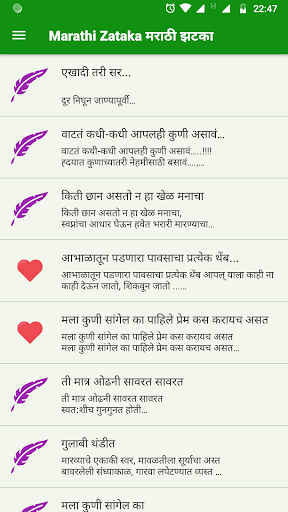 22:47
Marathi Zataka मराठी झटका
एखादी तरी सर...
दूर निघून जाण्यापूर्वी...
वाटतं कधी-कधी आपलही कुणी असावं...
वाटतं कधी-कधी आपलही कुणी असावं.....!!!!
ह्दयात कुणाच्यातरी नेहमीसाठी बसावं....,...
किती छान असतो न हा खेळ मनाचा
किती छान असतो न हा खेळ मनाचा,
स्वप्नांचा आधार घेऊन हवेत भरारी मारण्याचा...
आभाळातून पडणारा पावसाचा प्रत्येक थेंब...
आभाळातून पडणारा पावसाचा प्रत्येक थेंब आपल् वाला काही ना
काही देऊन जातो, शिकवून जातो ...…
मला कुणी सांगेल का पाहिले प्रेम कस करायच असत
मला कुणी सांगेल का पाहिले प्रेम कस करायच असत
मला कुणी सांगेल का पाहिले प्रेम कस करायच असत...
ती मात्र ओढनी सावरत सावरत
ती मात्र ओढनी सावरत सावरत
स्वत:शीच गुनगुनत होती...
गुलाबी थंडीत
मारव्याचे एकाकी स्वर, मावळतीला सूर्याचा अस्त
बावरलेली संध्याकाळ, गारवा लपेटण्यात व्यस्त ...
मला कुणी सांगेल का